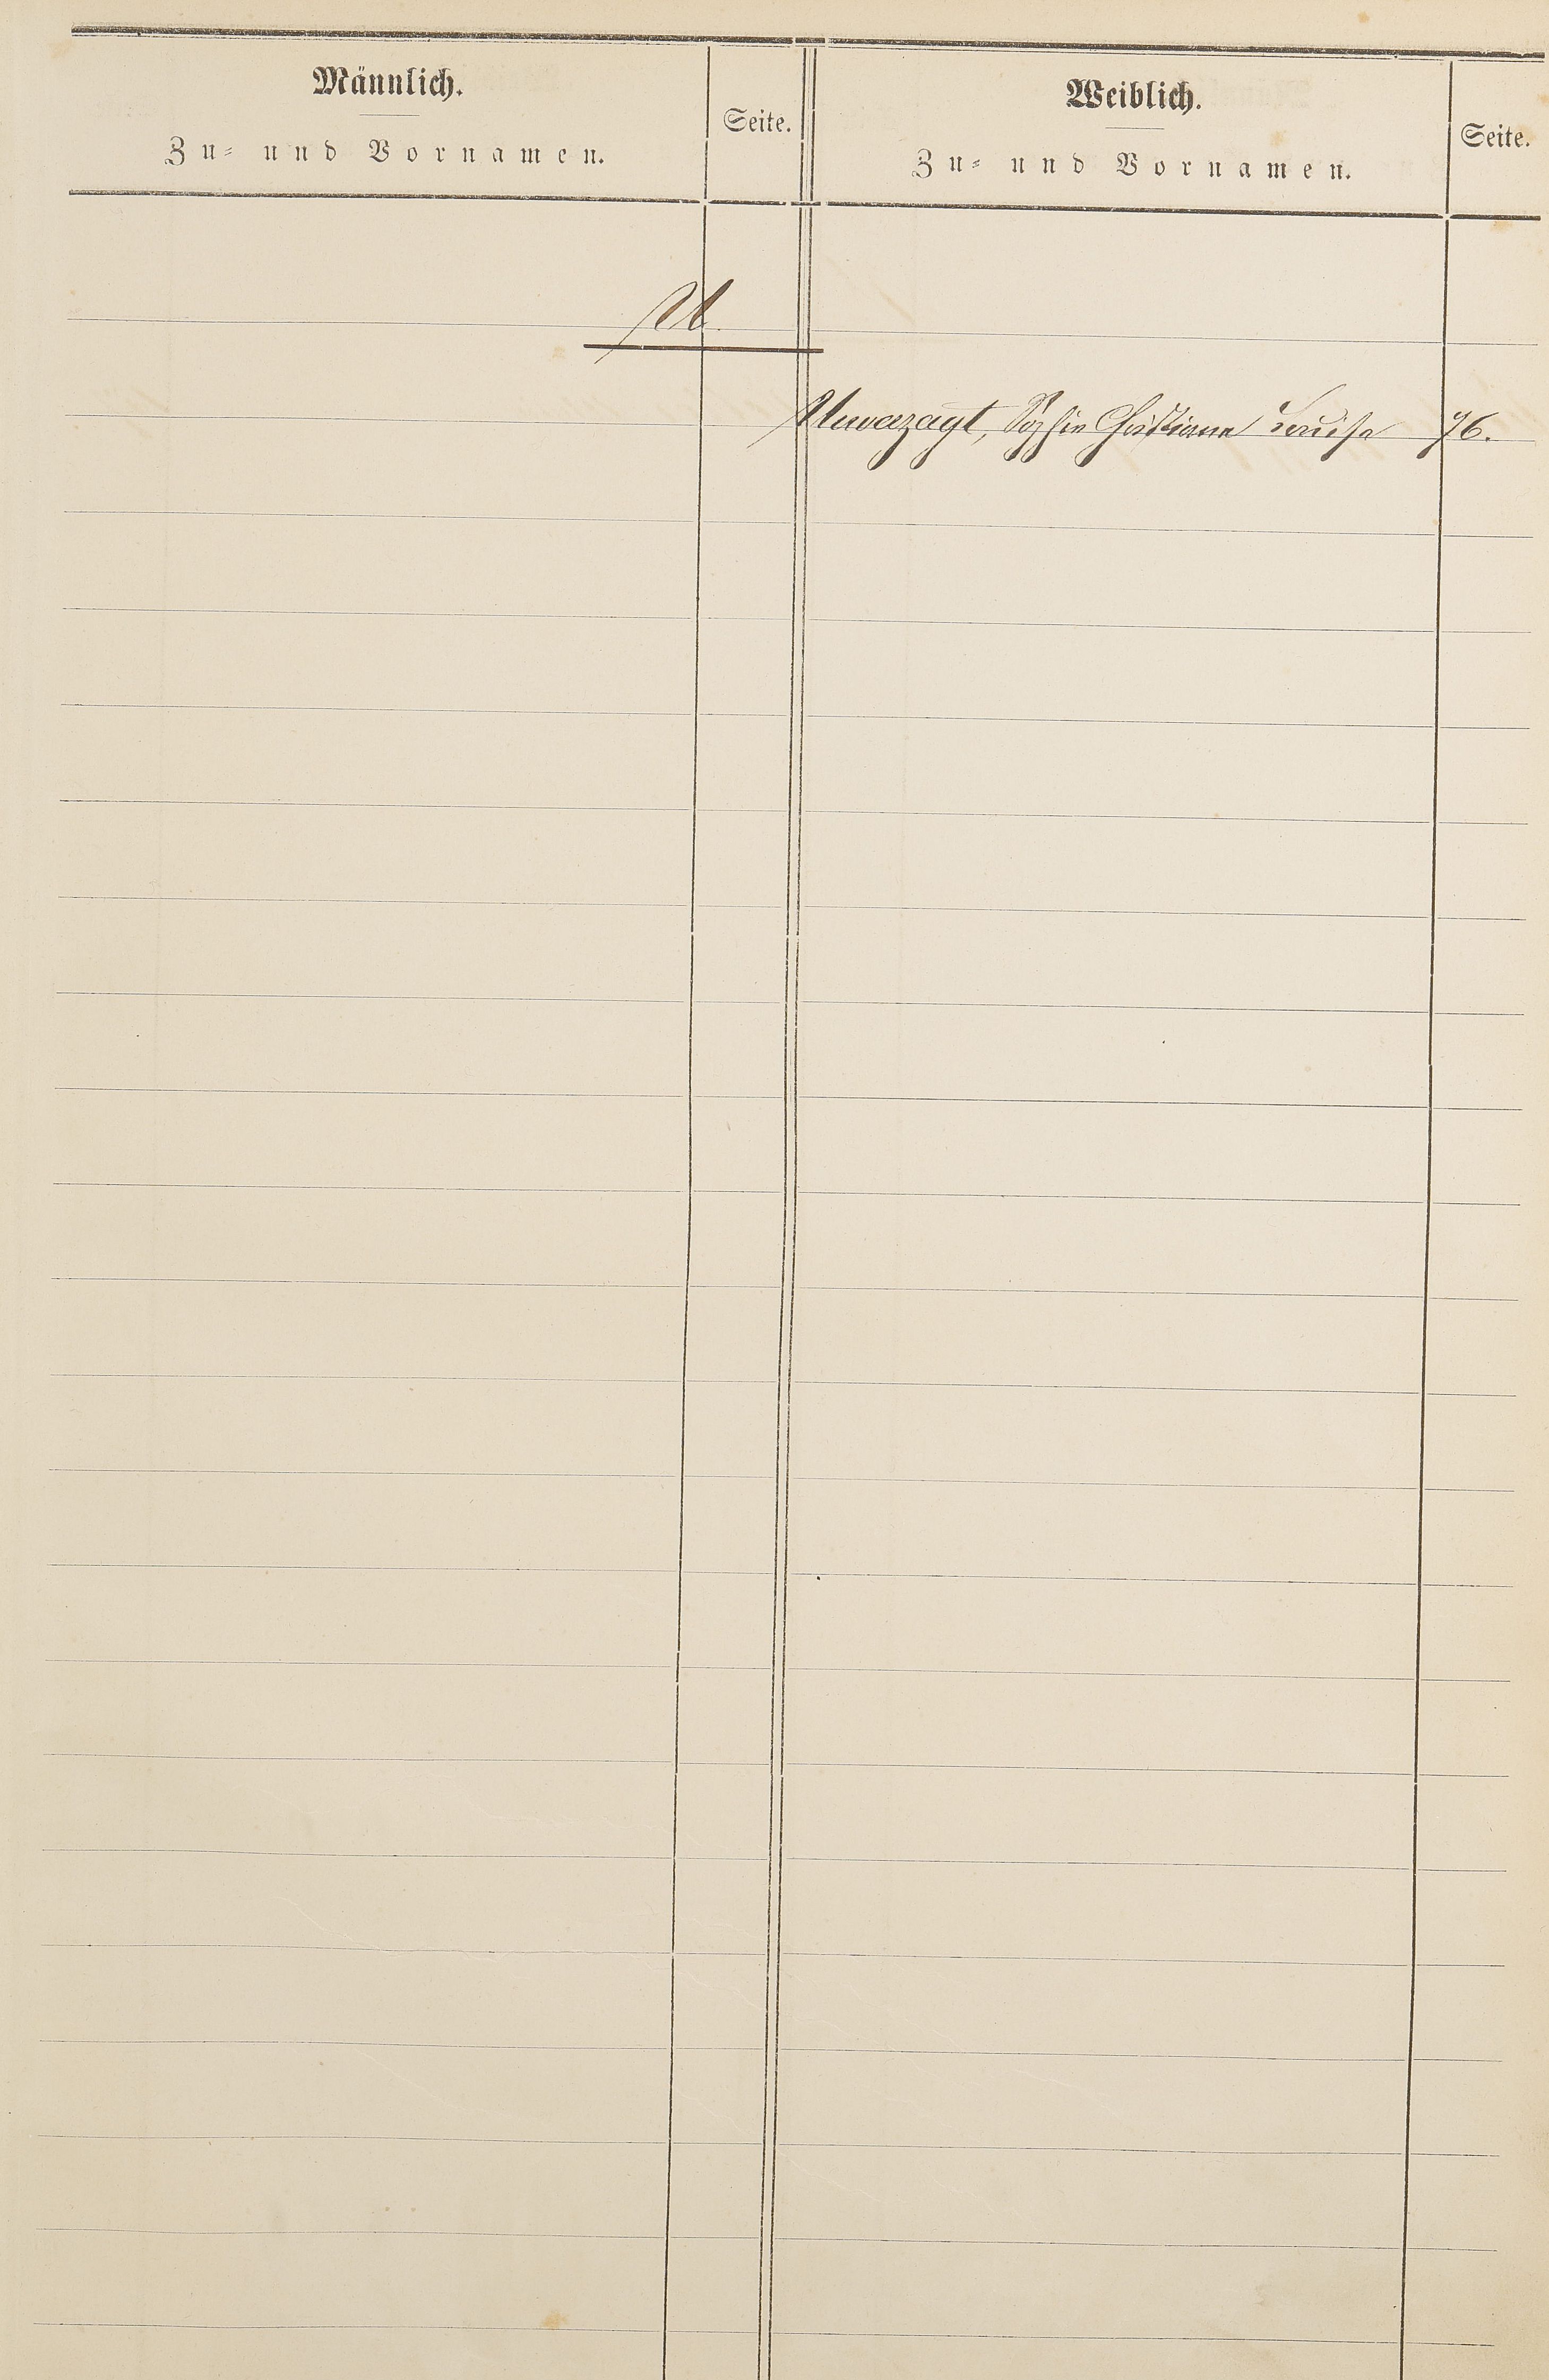 Männlich.
Zu- und Vornamen.
Seite.
Weiblich.
Zu- und Vornamen.
Seite.
U.
Unverzagt, Sophie Christiane Louise 76.